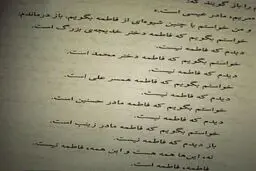 را باز گویند که:
مریم، مادر عیسی است.»
و من خواستم با چنین شیوه‌ای از فاطمه بگویم. باز درماندم:
خواستم بگویم که فاطمه دختر خدیجه‌ی بزرگ است.
دیدم که فاطمه نیست.
خواستم بگویم که فاطمه دختر محمد است.
دیدم که فاطمه نیست.
خواستم بگویم که فاطمه همسر علی است.
دیدم که فاطمه نیست.
خواستم بگویم که فاطمه مادر حسنین است.
دیدم که فاطمه نیست.
خواستم بگویم که فاطمه مادر زینب است.
باز دیدم که فاطمه نیست.
نه، این‌ها همه هست و این همه فاطمه نیست.
فاطمه، فاطمه است.